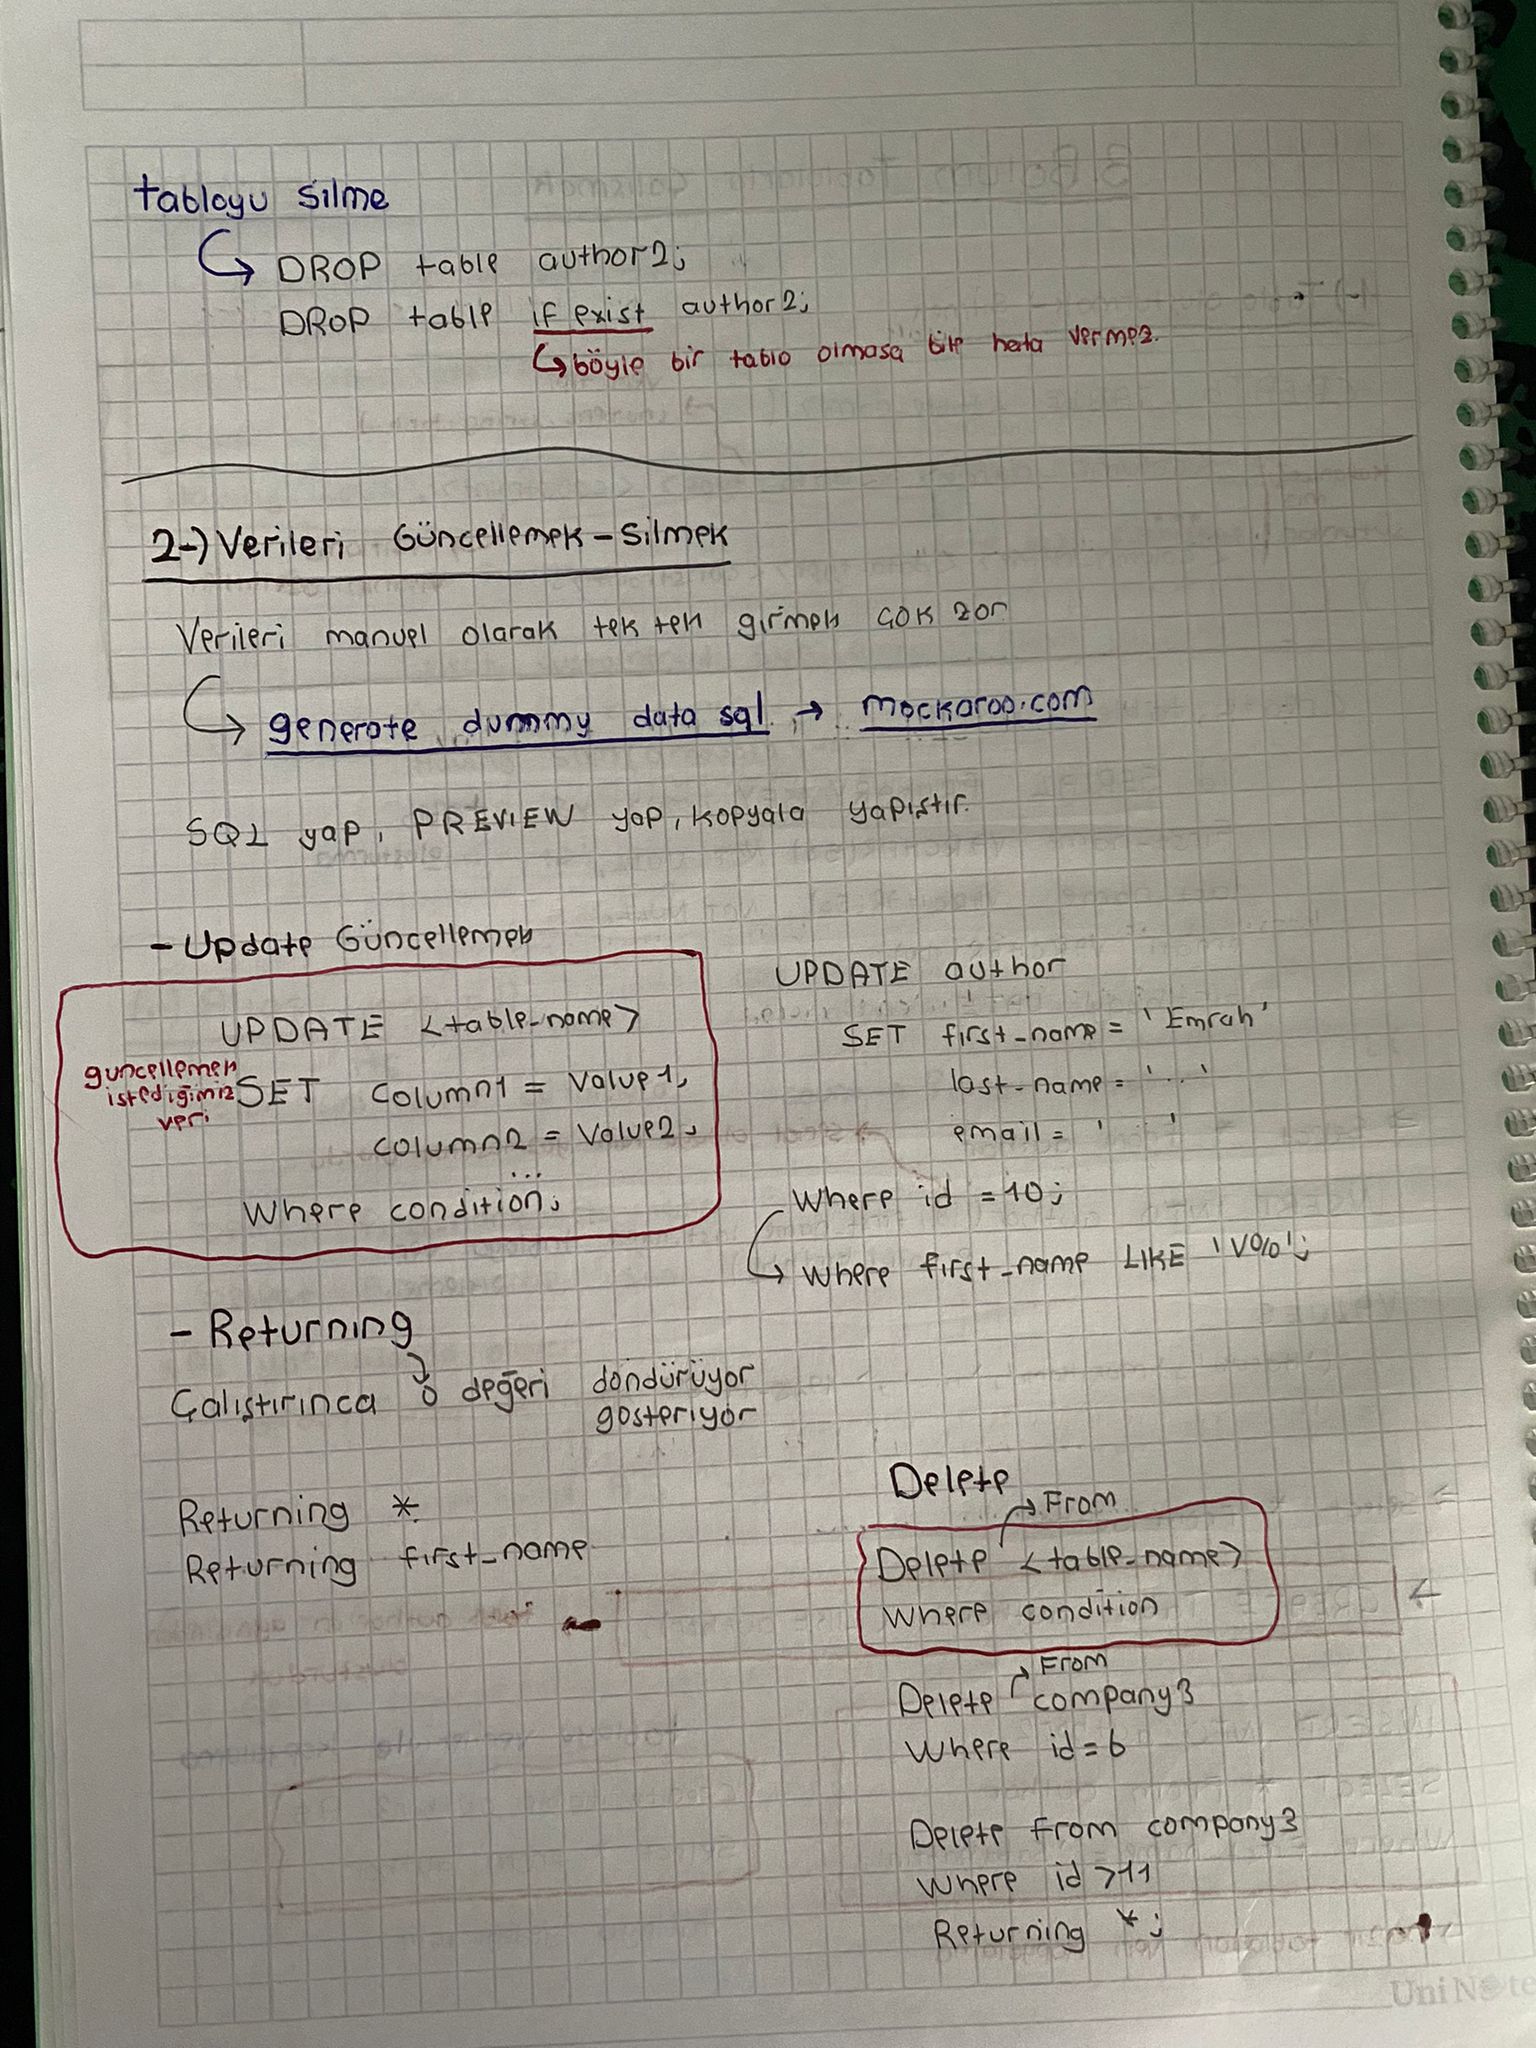 tabloyu silme
DROP table author2;
DROP table if exist author2;
böyle bir tablo olmasa bile hata vermez.
2-) Verileri Güncellemek - Silmek
Verileri manuel olarak tek tek girmek çok zor
generate dummy data sql → mockaroo.com
SQL yap, PREVIEW yap, kopyala yapıştır.
- Update Güncellemek
UPDATE <table_name>
güncellemek
istediğimiz
veri
SET column1 = Value1,
column2 = Value2,
...
Where condition;
UPDATE author
SET first_name = 'Emrah'
last_name = '...'
email = ' '
Where id = 10;
Where first_name LIKE 'V%';
- Returning
Çalıştırınca o değeri döndürüyor
gösteriyor
Returning *
Returning first_name
Delete
From
Delete <table_name>
Where condition
From
Delete company3
Where id = 6
Delete from company3
Where id > 11
Returning *;